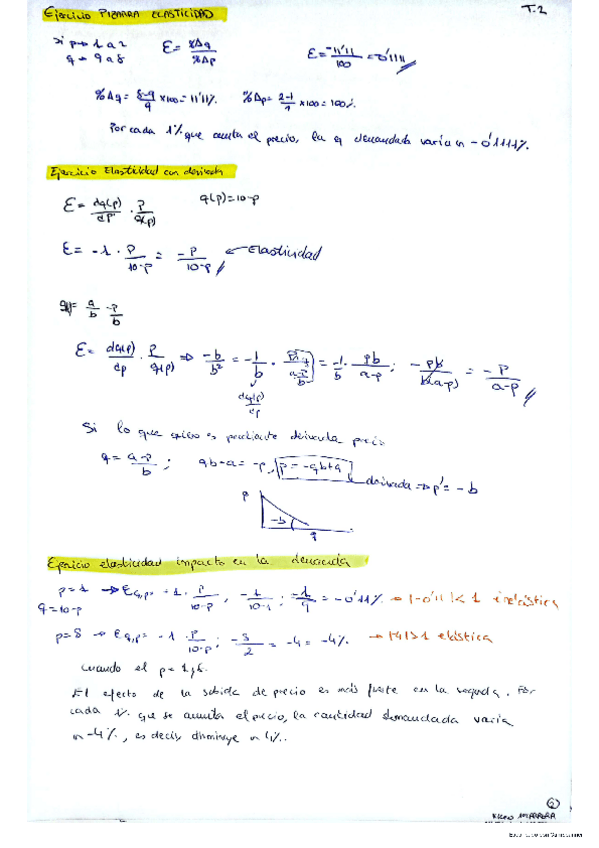 Ejercicio PIZARRA ELASTICIDAD
T.2
Si p → 1 a 2
q → 9 a 8
E = %Δq / %Δp
E = -11'11 / 100 = -0'1111
%Δq = 8-9 / 9 x100 = 11'11% %Δp = 2-1 / 1 x100 = 100%
Por cada 1% que aumenta el precio, la q demandada varía n -0'1111%.
Ejercicio Elasticidad con derivada
E = dq(p) / dp · p / q(p) q(p) = 10-p
E = -1 · p / 10-p = -p / 10-p ← Elasticidad
q = a / b - p / b
E = dq(p) / dp · p / q(p) ⇒ -b / b² = -1 / b · = -1 / b · pb / a-p ; -pb / b(a-p) = -p / a-p
dq(p) / dp
Si lo que es pendiente derivada precio
q = a-p / b ; qb-a = -p, p = -qb+a
derivada ⇒ p' = -b
p
-b
q
Ejercicio elasticidad impacto en la demanda
p=1 → Eq,p = -1 · p / 10-p , -1 / 10-1 ; -1 / 9 = -0'11% → |-0'11| < 1 inelástica
q = 10-p
p=8 → Eq,p = -1 · p / 10-p ; -8 / 2 = -4 = -4% → |4|>1 elástica
Cuando el p = 1,8.
El efecto de la subida de precio es más fuerte en la segunda. Por
cada 1% que se aumenta el precio, la cantidad demandada varía
n -4%, es decir, disminuye n 4%.
2